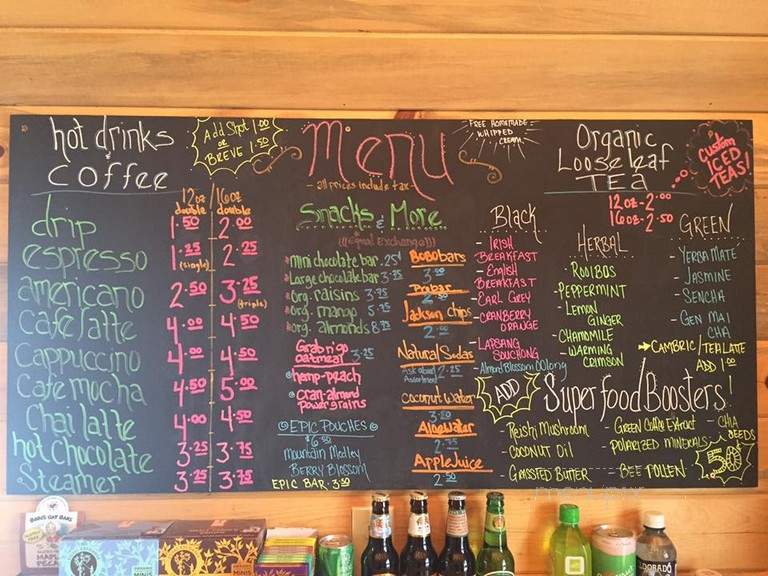 hot drinks
&
coffee
12oz
double
16oz
double
drip 1.50 2.00
espresso 1.25 (single) 2.25
americano 2.50 3.25 (triple)
Cafe latte 4.00 4.50
Cappuccino 4.00 4.50
Cafe mocha 4.50 5.00
Chai latte 4.00 4.50
hot chocolate 3.25 3.75
Steamer 3.25 3.75
Add Shot 1.00
or
BREVE 1.50
Menu
- all prices include tax -
Snacks & More
mini chocolate bar .25¢
Large chocolate bar 3.25
org. raisins 3.75
org. mango 5.75
org. almonds 8.75
Grab n' go
oatmeal 3.25
hemp-peach
cran-almond
power grains
EPIC POUCHES
$6.50
Mountain Medley
BERRY BLOSSOM
EPIC BAR . 3.50
BoBobars
3.00
Probar
Jackson chips
2.00
Natural Sodas
Ask about
Assortment 2.25
coconut water
3.50
Aloewater
2.75
Apple Juice
2.50
FREE HOMEMADE
WHIPPED
CREAM
Black
- IRISH
BREAKFAST
- English
BREAKFAST
- EARL GREY
- CRANBERRY
ORANGE
- LAPSANG
SOUCHONG
- Almond Blossom Oolong
Organic
Loose leaf
TEA
12oz - 2.00
16oz - 2.50
Custom
ICED
TEAS!
HERBAL
- ROOIBOS
- PEPPERMINT
- LEMON
GINGER
- CHAMOMILE
- WARMING
CRIMSON
GREEN
- YERBA MATE
- JASMINE
- SENCHA
- GEN MAI
CHA
CAMBRIC/TEA LATTE
ADD 1.00
ADD
Superfood Boosters!
- Reishi Mushroom
- COCONUT OIL
- GRASSFED BUTTER
- GREEN Coffee EXTRACT
- POLARIZED MINERALS
- BEE POLLEN
- CHIA
SEEDS
.50